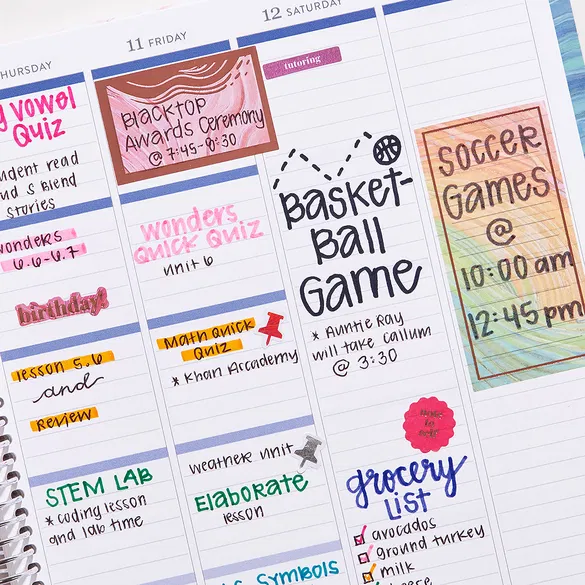 HURSDAY
g vowel
Quiz
udent read
ud s blend
stories
wonders
6.6-6.7
birthday!
lesson 5.6
and
Review
STEM LAB
* coding lesson
and lab time
11 FRIDAY
Blacktop
Awards Ceremony
@ 7:45-8:30
wonders
Quick Quiz
unit 6
Math Quick
Quiz
* Khan Accademy
weather unit
Elaborate
lesson
Symbols
12 SATURDAY
tutoring
Basket-
Ball
Game
* Auntie Ray
will take Callum
@ 3:30
grocery
List
avocados
ground turkey
milk
Soccer
Games
@
10:00 am
12:45 pm